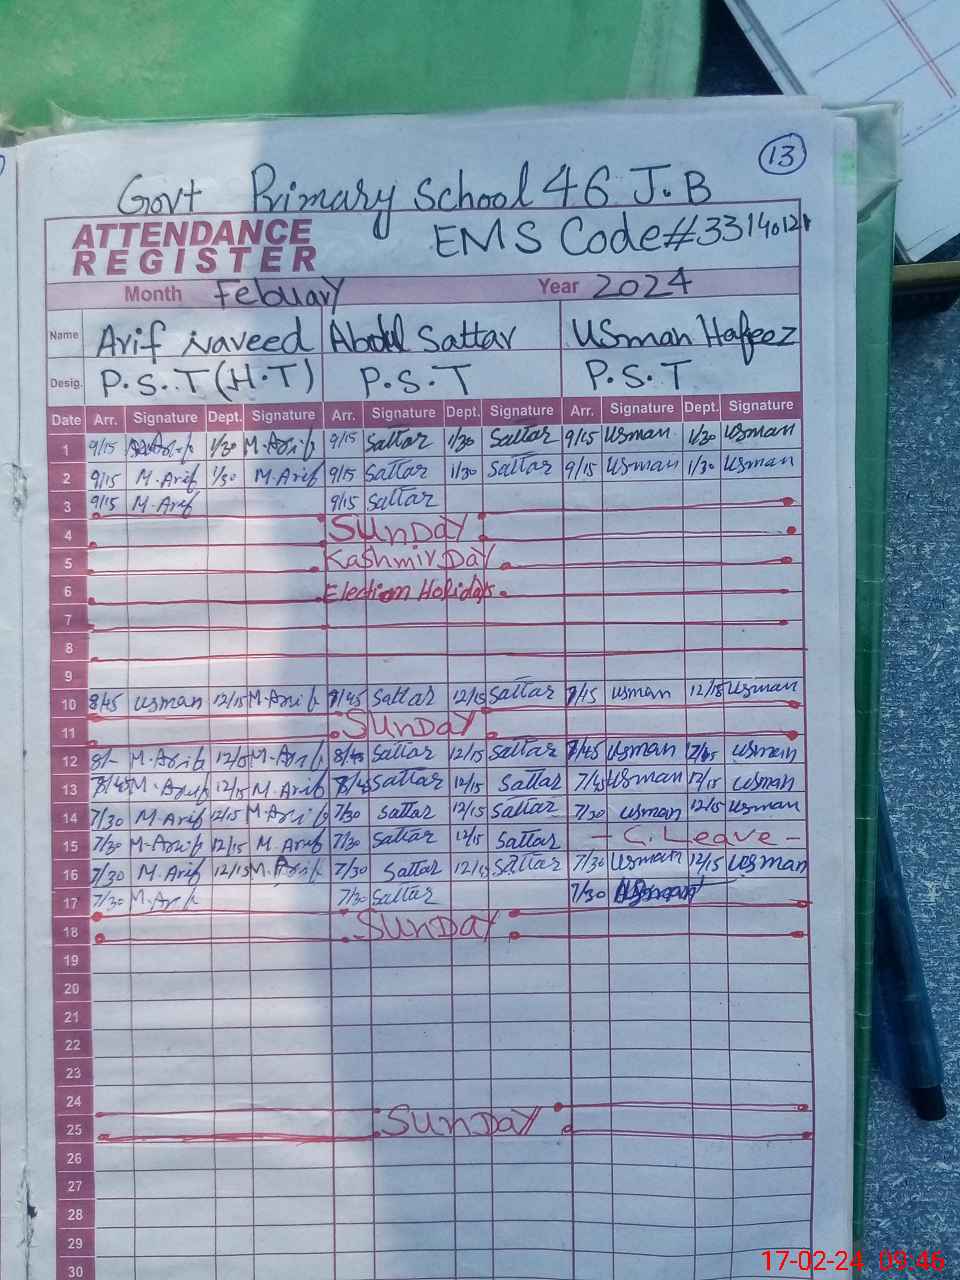 13
Govt Primary School 46 J.B
ATTENDANCE REGISTER EMS Code#33140121
Month Febuary Year 2024
Name Arif Naveed Abdul Sattar Usman Hafeez
Desig. P.S.T (H.T) P.S.T P.S.T
Date Arr. Signature Dept. Signature Arr. Signature Dept. Signature Arr. Signature Dept. Signature
1 9/15 1/30 M.Arif 9/15 Sattar 1/30 Sattar 9/15 Usman 1/30 Usman
2 9/15 M.Arif 1/30 M.Arif 9/15 Sattar 1/30 Sattar 9/15 Usman 1/30 Usman
3 9/15 M.Arif 9/15 Sattar
4 SUNDAY
5 Kashmir Day
6 Election Holidays
7
8
9
10 8/45 Usman 12/15 M.Arif Sattar 12/15 Sattar Usman 12/15 Usman
11 SUNDAY
12 8/- M.Arif 12/15 M.Arif 8/45 Sattar 12/15 Sattar Usman Usman
13 M.Arif 12/15 M.Arif Sattar 12/15 Sattar 7/45 Usman 12/15 Usman
14 7/30 M.Arif 12/15 M.Arif 7/30 Sattar 12/15 Sattar 7/30 Usman 12/15 Usman
15 7/30 M.Arif 12/15 M.Arif 7/30 Sattar 12/15 Sattar - C.Leave -
16 7/30 M.Arif 12/15 M.Arif 7/30 Sattar 12/15 Sattar 7/30 Usman 12/15 Usman
17 7/30 M.Arif 7/30 Sattar 7/30 Usman
18 SUNDAY
19
20
21
22
23
24
25 SUNDAY
26
27
28
29
30
17-02-24 09:46